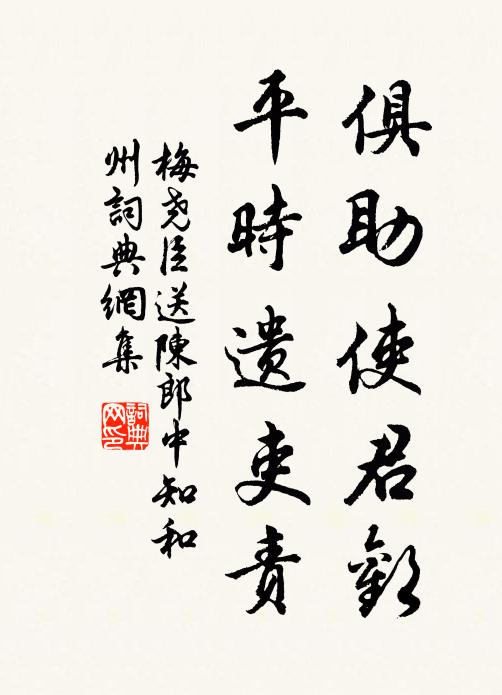 俱助使君歡
平時遺吏責
梅尧臣送陳郎中知和
州詞典網集
詞典
网印